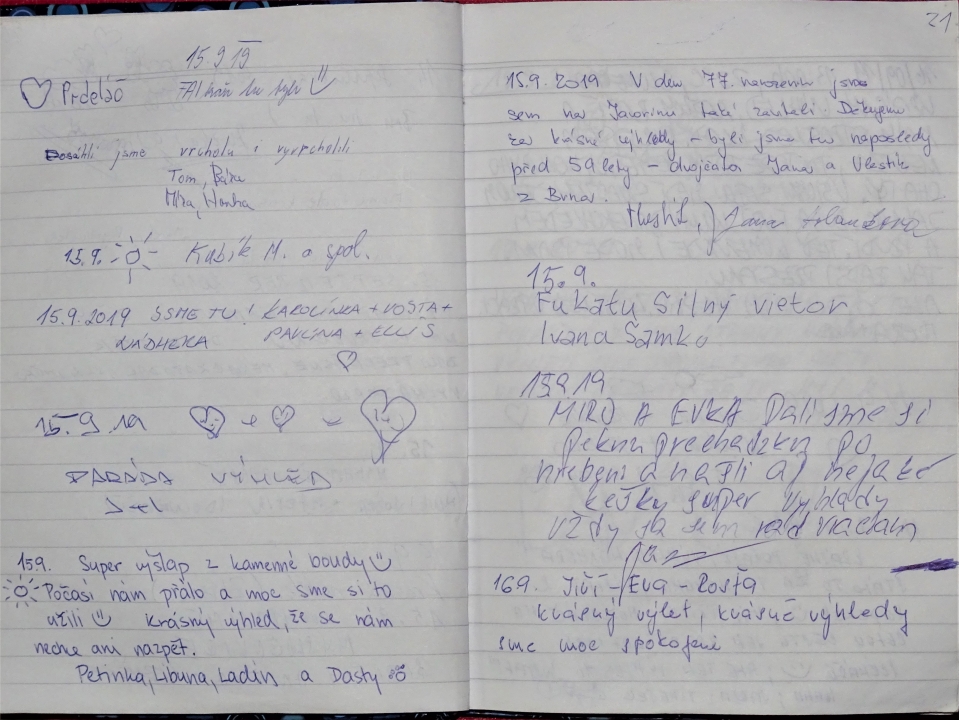 15.9.19
Prdeláč
Dosáhli jsme vrcholu i vyvrcholili
Tom, Bára
Míra, Hanka
15.9. Kubík M. a spol.
15.9.2019 JSME TU! KAROLÍNKA + VOSTA +
NÁDHERA PAVLÍNA + ELLIŠ
15.9.19
PARÁDA VÝHLED
J+L
159. Super výšlap z kamenné boudy
Počasí nám přálo a moc sme si to
užili krásný výhled, že se nám
nechce ani nazpět.
Petinka, Libuna, Ladin a Dasty
21
15.9.2019 V den 77. narozenin jsme
sem na Javorinu také zavítali. Děkujeme
za krásné výhledy - byli jsme tu naposledy
před 59 lety - dvojčata Jana a Vlastik
z Brna.
Jana
15.9.
Fukatu silný vietor
Ivana Samko
15.9.19
MIRO A EVKA Dali sme si
peknu prechadzku po
hrebeni a našli aj nejaké
kešky super vyhlady
vždy sa sem rad vraciam
169. Jiří - Eva - Rosťa
krásný výlet, krásné výhledy
sme moc spokojeni